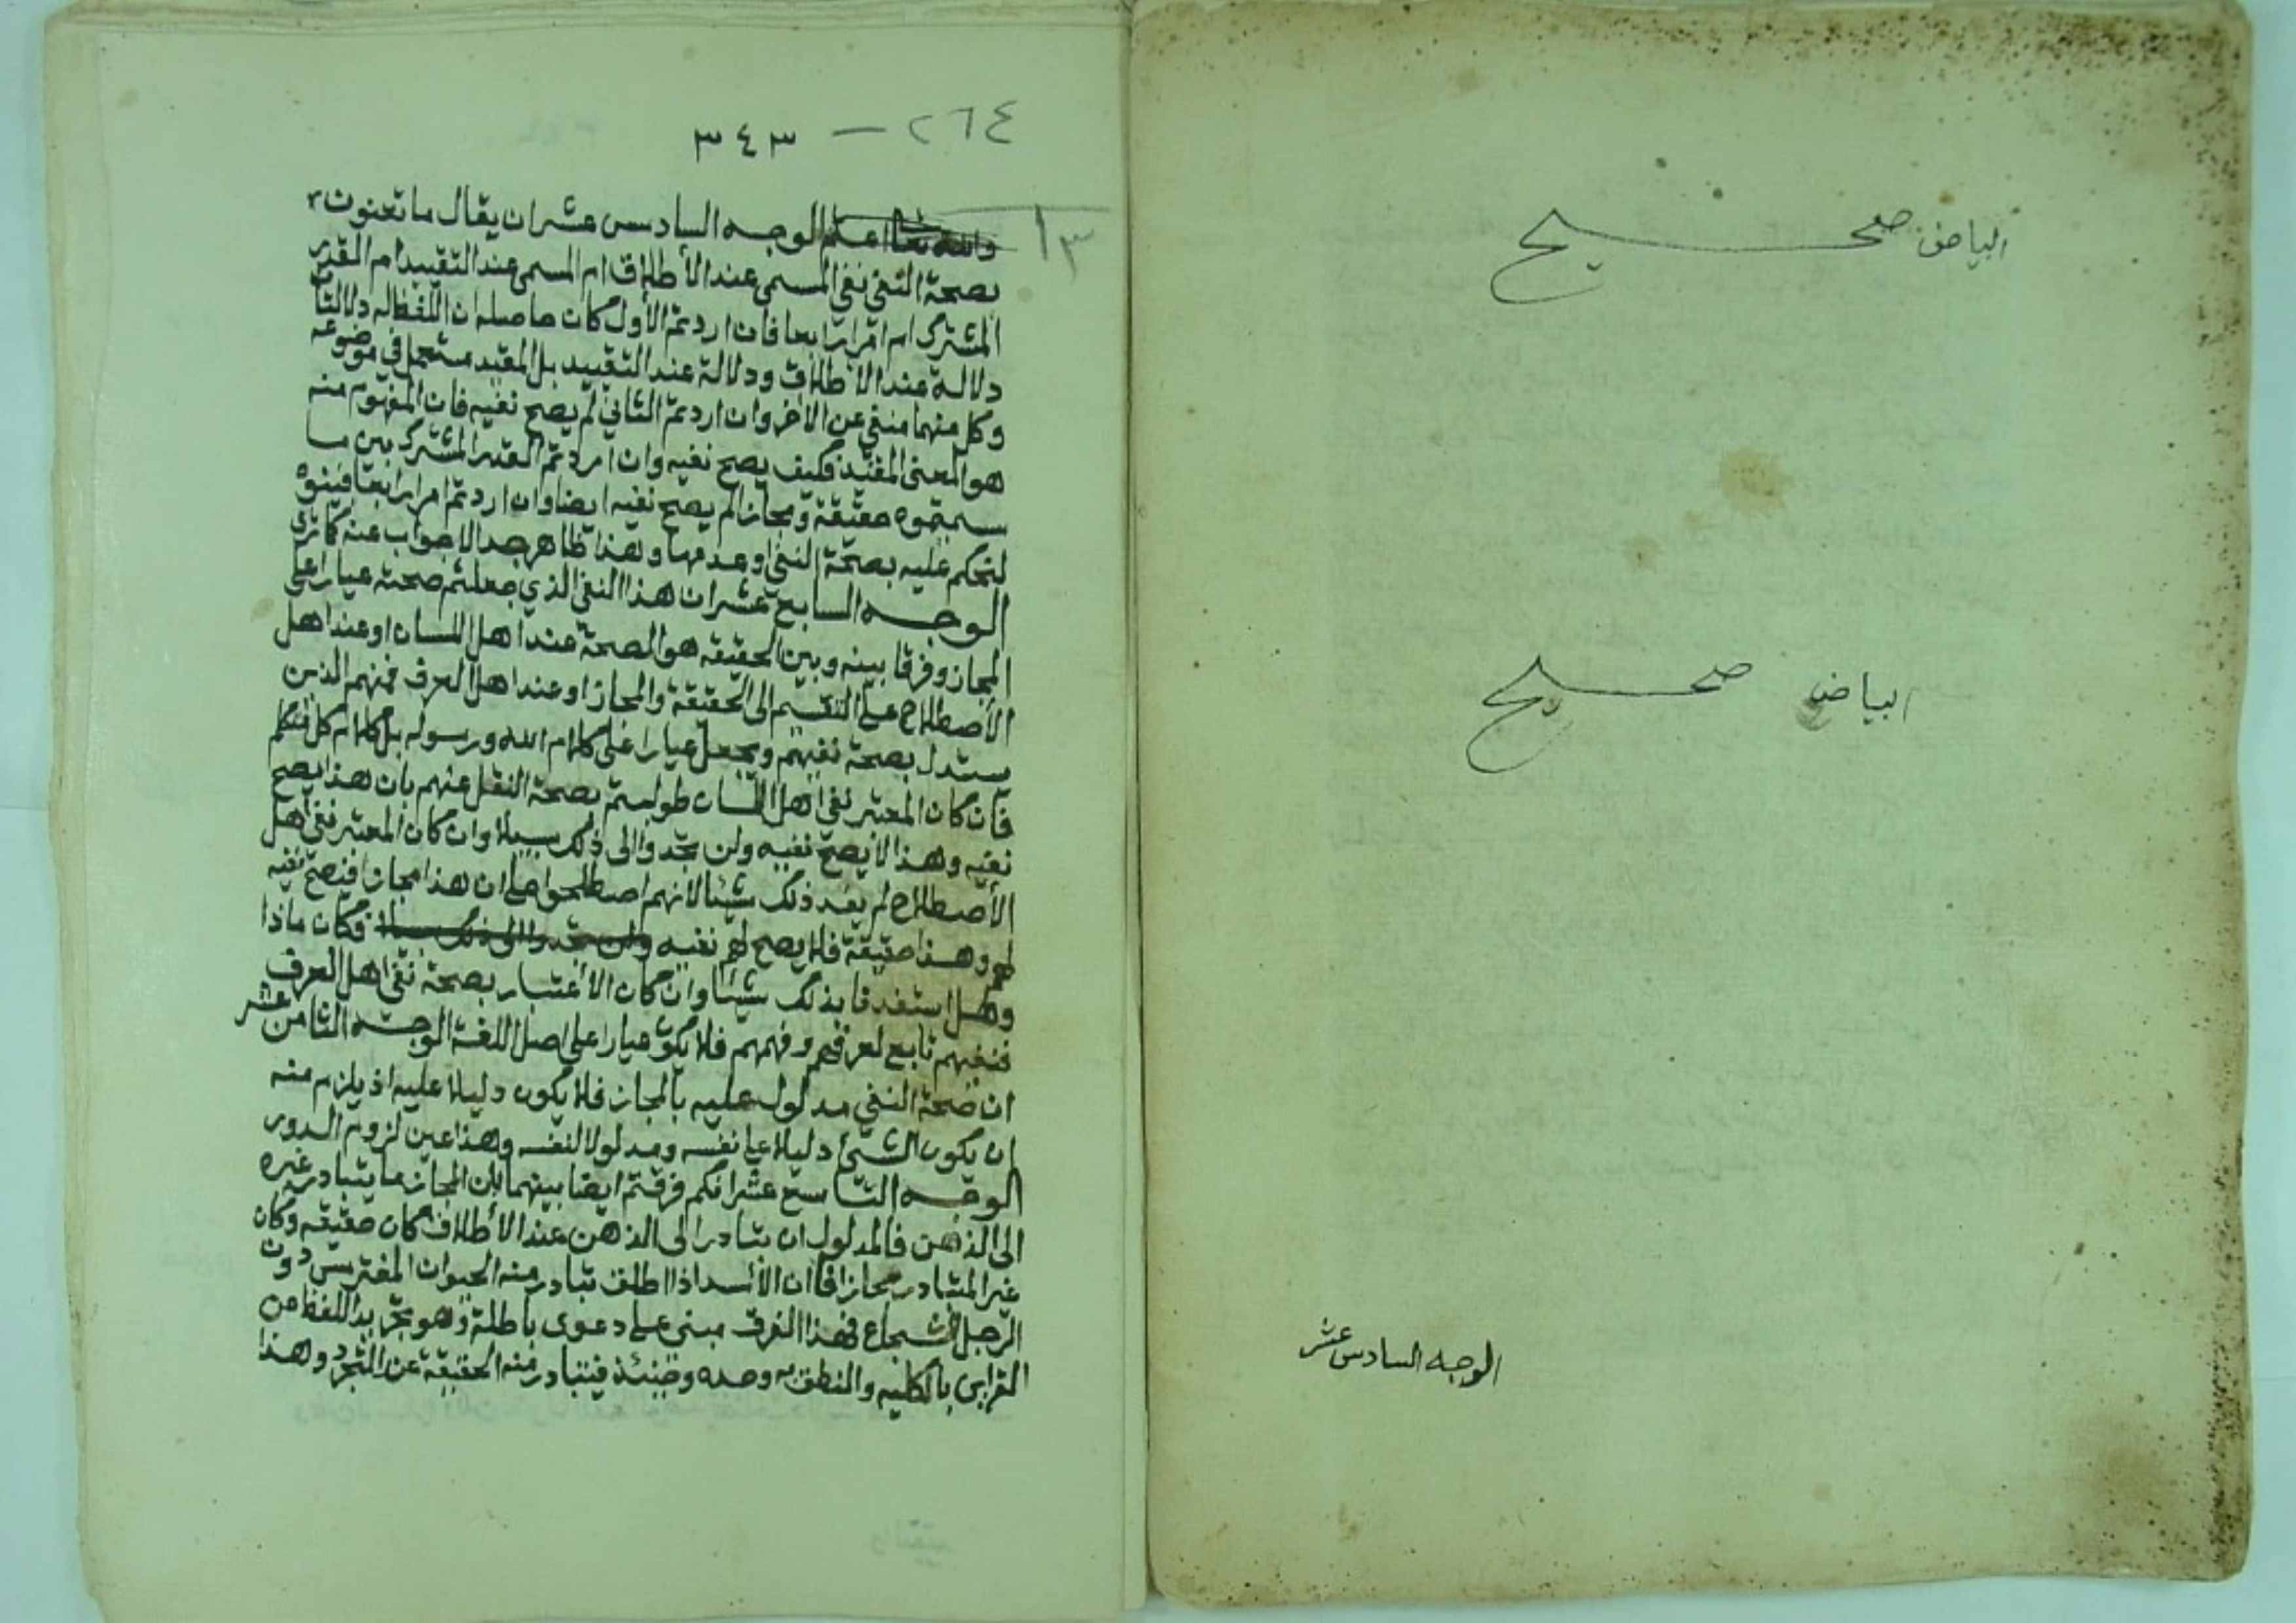 البياض صحيح
البياض صحيح
الوجه السادس عشر
٢٦٤ — ٣٤٣
١٣
والله تعالى اعلم الوجه السادس عشر ان يقال ما تعنون
بصحة النفي نفي المسمى عند الأطلاق ام المسمى عند التقييد ام القدر
المشترك ام امرا رابعا فان اردتم الأول كان حاصله ان اللفظ له دلالتان
دلالة عند الاطلاق ودلالة عند التقييد بل المقيد مستعمل في موضوعه
وكل منهما منفي عن الاخر وان اردتم الثاني لم يصح نفيه فان المفهوم منه
هو المعنى المقيد فكيف يصح نفيه وان اردتم القدر المشترك بين ما
سميتموه حقيقة ومجازا لم يصح نفيه ايضا وان اردتم امرا رابعا فبينوه
لنحكم عليه بصحة النفي او عدمها وهذا ظاهر جدا لا جواب عنه كما ترى
الوجه السابع عشر ان هذا النفي الذي جعلتم صحته عيارا على
المجاز وفرقا بينه وبين الحقيقه هو الصحة عند اهل اللسان او عند اهل
الأصطلاح على التقسيم الى الحقيقة والمجاز او عند اهل العرف فمنهم الذين
يستدل بصحة نفيهم ويجعل عيارا على كلام الله ورسوله بل كلام كل متكلم
فان كان المعتبر نفي اهل اللسان طولبتم بصحة النقل عنهم بان هذا يصح
نفيه وهذا لا يصح نفيه ولن تجدوا الى ذلك سبيلا وان كان المعتبر نفي اهل
الأصطلاح لم يفد ذلك شيئا لانهم اصطلحوا على ان هذا مجازا فيصح نفيه
لهم وهذا حقيقة فلا يصح لهم نفيه ولن تجدوا الى ذلك سبيلا فكان ماذا
وهل استفدنا بذلك شيئا وان كان الأعتبار بصحة نفي اهل العرف
فنفيهم تابع لعرفهم وفهمهم فلا يكون عيارا على اصل اللغة الوجه الثامن عشر
ان صحة النفي مدلول عليه بالمجاز فلا يكون دليلا عليه اذ يلزم منه
ان يكون الشيئ دليلا على نفسه ومدلولا لنفسه وهذا عين لزوم الدور
الوجه التاسع عشر انكم فرقتم ايضا بينهما بان المجاز ما يتبادر غيره
الى الذهن فالمدلول ان تبادر الى الذهن عند الأطلاق كان حقيقه وكان
غير المتبادر مجازا فان الأسد اذا اطلق تبادر منه الحيوان المفترس دون
الرجل الشجاع فهذا الفرق مبني على دعوى باطلة وهو تجريد اللفظ من
القراين بالكليه والنطق به وحده وحينئذ فيتبادر منه الحقيقة عن التجرد وهذا